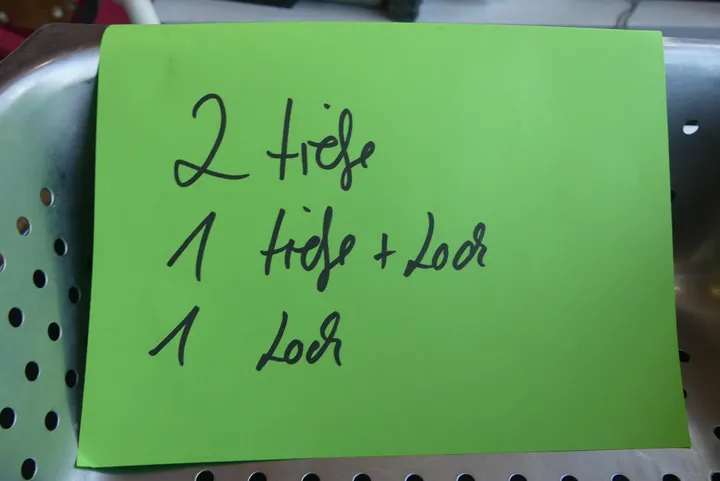 2 tiefe
1 tiefe + Loch
1 Loch